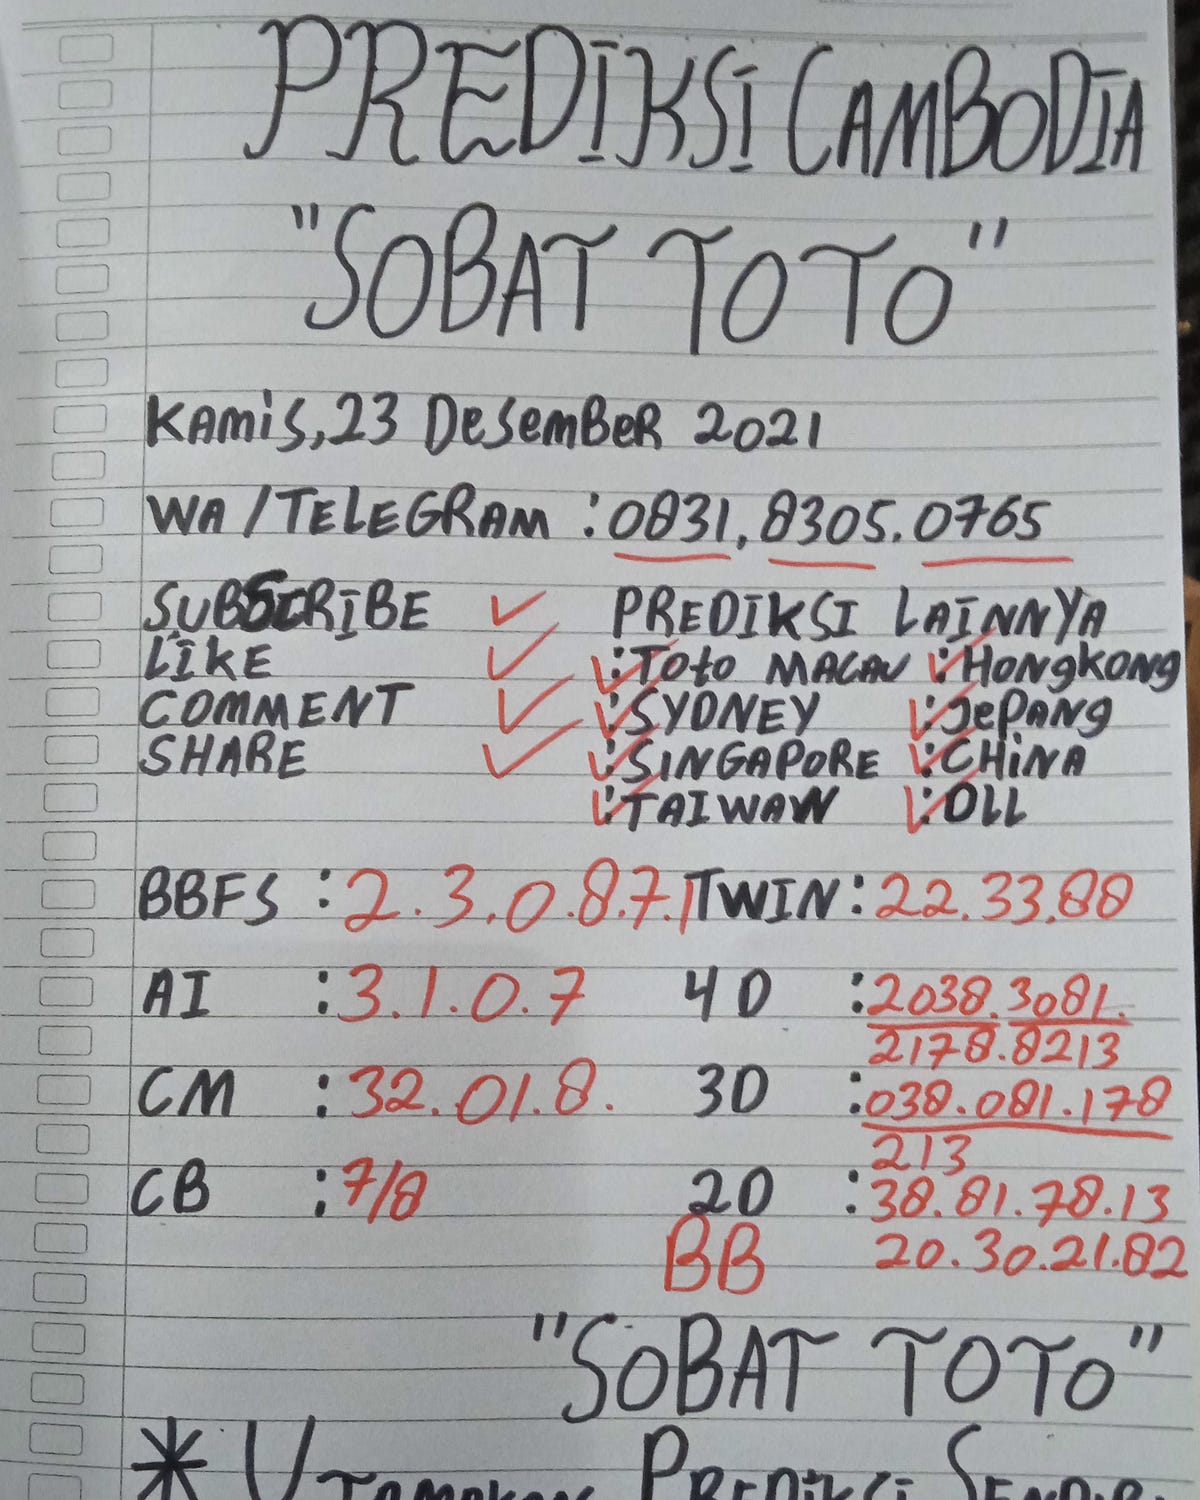 PREDIKSI CAMBODIA
"SOBAT TOTO"
KAMIS,23 DESEMBER 2021
WA/TELEGRAM :0831.8305.0765
SUBSCRIBE PREDIKSI LAINNYA
LIKE :TOTO MACAU :HONGKONG
COMMENT :SYDNEY :JEPANG
SHARE :SINGAPORE :CHINA
:TAIWAN :DLL
BBFS :2.3.0.8.7.1 TWIN:22.33.88
AI :3.1.0.7 4D :2038.3081.
2178.8213
CM :32.01.8. 3D :038.081.178
213
CB :7/8 2D :38.81.78.13
BB 20.30.21.82
"SOBAT TOTO"
*UTAMAKAN PREDIKSI SENDIRI